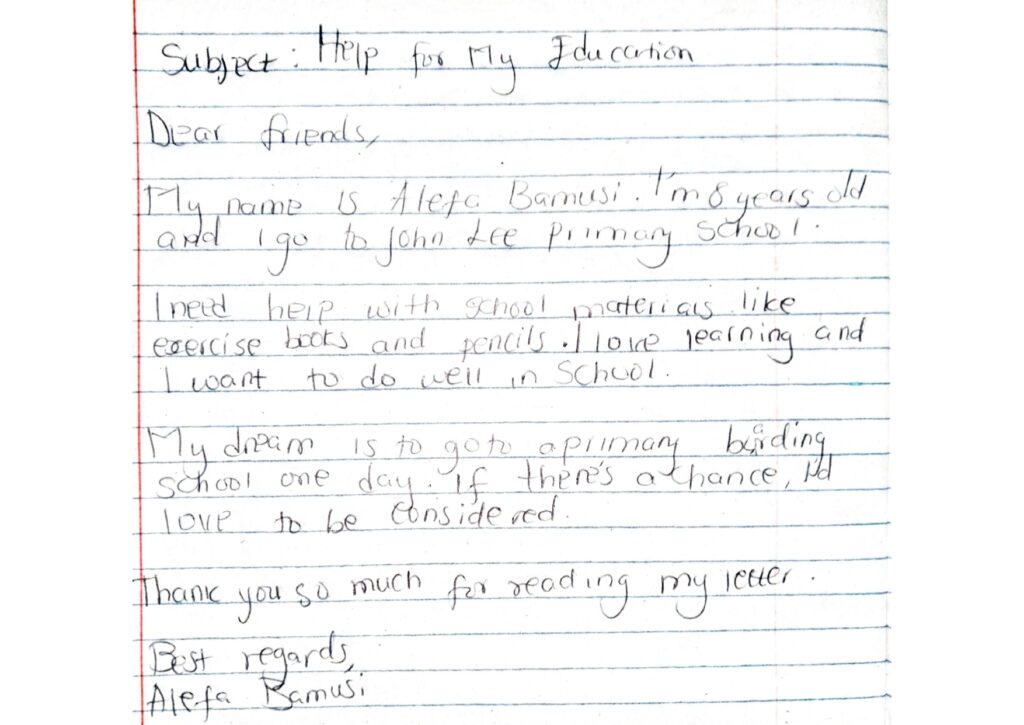 Subject: Help for My Education
Dear friends,
My name is Alefa Bamusi. I'm 8 years old
and I go to John Lee primary school.
I need help with school materials like
exercise books and pencils. I love learning and
I want to do well in school.
My dream is to go to a primary boarding
school one day. If there's a chance, I'd
love to be considered.
Thank you so much for reading my letter.
Best regards,
Alefa Bamusi